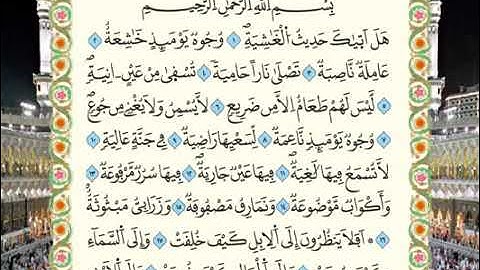 بِسْمِ اللَّهِ الرَّحْمَٰنِ الرَّحِيمِ
هَلْ أَتَىٰكَ حَدِيثُ ٱلْغَٰشِيَةِ وُجُوهٌ يَوْمَئِذٍ خَٰشِعَةٌ ٢
عَامِلَةٌ نَّاصِبَةٌ ٣ تَصْلَىٰ نَارًا حَامِيَةً ٤ تُسْقَىٰ مِنْ عَيْنٍ ءَانِيَةٍ
٥ لَّيْسَ لَهُمْ طَعَامٌ إِلَّا مِن ضَرِيعٍ ٦ لَّا يُسْمِنُ وَلَا يُغْنِي مِن جُوعٍ
٧ وُجُوهٌ يَوْمَئِذٍ نَّاعِمَةٌ ٨ لِّسَعْيِهَا رَاضِيَةٌ ٩ فِي جَنَّةٍ عَالِيَةٍ ١٠
لَّا تَسْمَعُ فِيهَا لَٰغِيَةً ١١ فِيهَا عَيْنٌ جَارِيَةٌ ١٢ فِيهَا سُرُرٌ مَّرْفُوعَةٌ ١٣
وَأَكْوَابٌ مَّوْضُوعَةٌ ١٤ وَنَمَارِقُ مَصْفُوفَةٌ ١٥ وَزَرَابِيُّ مَبْثُوثَةٌ
١٦ أَفَلَا يَنظُرُونَ إِلَى ٱلْإِبِلِ كَيْفَ خُلِقَتْ ١٧ وَإِلَى ٱلسَّمَآءِ